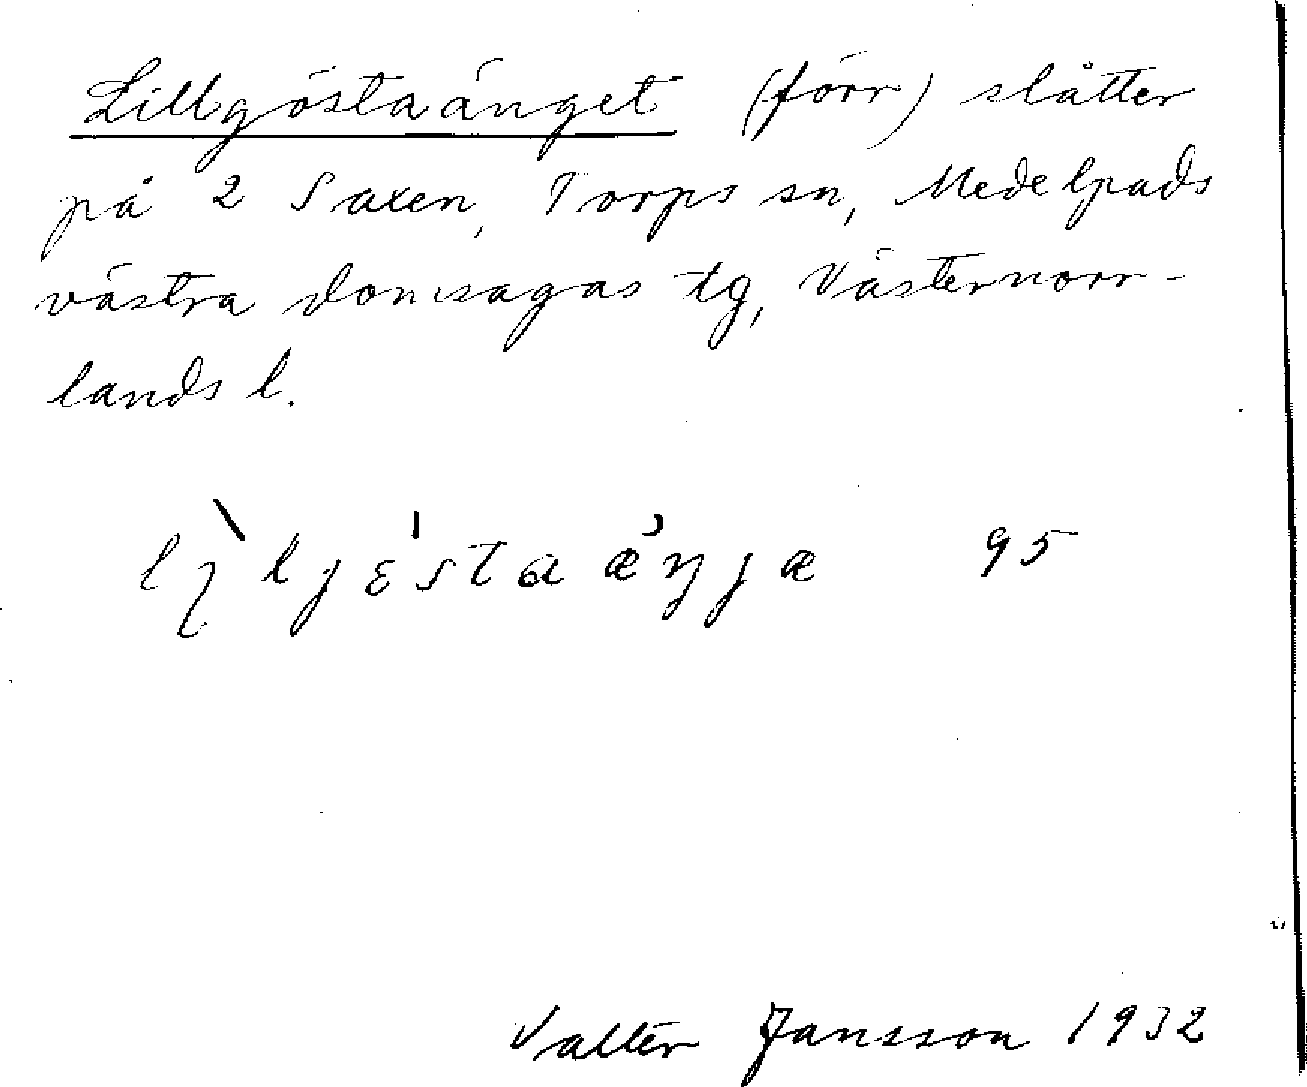 Lillgöstaänget (förr) slåtter
på 2 Saxen, Torps sn, Medelpads
västra domsagas tg, Västernorr-
lands l.
95
Valter Jansson 1932